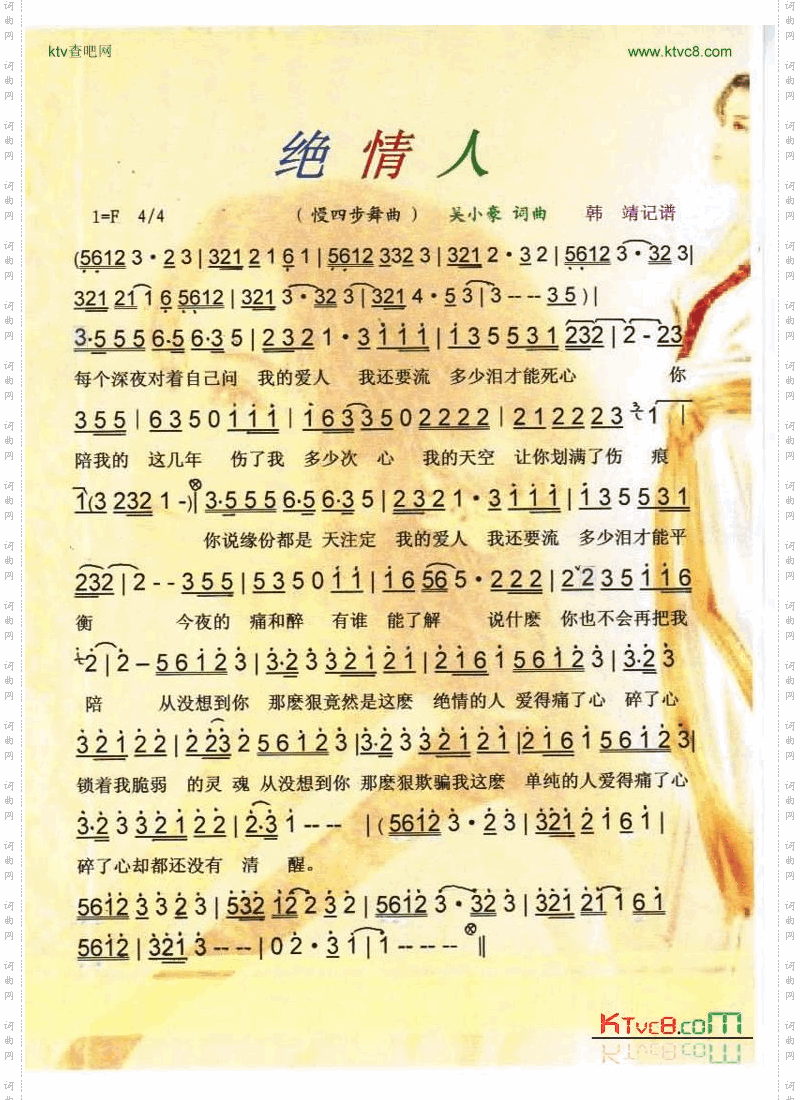 ktv查吧网 www.ktvc8.com
绝情人
1=F 4/4 (慢四步舞曲) 吴小豪 词曲 韩 靖记谱
(5612 3·2 3|321 2 1 6 1|5612 332 3|321 2·3 2|5612 3·32 3|
321 21 1 6 5612|321 3·32 3|321 4·5 3|3 -- -- 3 5)|
3·5 5 5 6·5 6·3 5|2 3 2 1·3 1 1 1|1 3 5 5 5 3 1 232|2 - 23
每个深夜对着自己问 我的爱人 我还要流 多少泪才能死心 你
3 5 5|6 3 5 0 1 1 1|1 6 3 3 5 0 2 2 2 2|2 1 2 2 2 3 1|
陪我的 这几年 伤了我 多少次 心 我的天空 让你划满了伤 痕
1(3 232 1 -)|3·5 5 5 6·5 6·3 5|2 3 2 1·3 1 1 1|1 3 5 5 3 1
你说缘份都是 天注定 我的爱人 我还要流 多少泪才能平
232|2 - - 3 5 5|5 3 5 0 1 1|1 6 56 5·2 2 2|2 2 3 5 1 1 6
衡 今夜的 痛和醉 有谁 能了解 说什麽 你也不会再把我
2|2 – 5 6 1 2 3|3·2 3 3 2 1 2 1|2 1 6 1 5 6 1 2 3|3·2 3
陪 从没想到你 那麽狠竟然是这麽 绝情的人 爱得痛了心 碎了心
3 2 1 2 2|2 23 2 5 6 1 2 3|3·2 3 3 2 1 2 1|2 1 6 1 5 6 1 2 3|
锁着我脆弱 的灵 魂 从没想到你 那麽狠欺骗我这麽 单纯的人爱得痛了心
3·2 3 3 2 1 2 2|2·3 1 -- -- |(5612 3·2 3|321 2 1 6 1|
碎了心却都还没有 清 醒。
5612 3 3 2 3|532 12 2 3 2|5612 3·32 3|321 21 1 6 1
5612|321 3 -- --|0 2·3 1|1 -- -- --‖
KTvc8.com